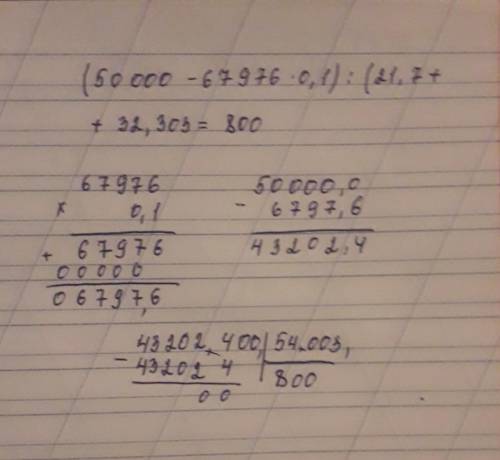 (50 000 - 67976 · 0,1) : (21,7 +
+ 32,303 = 800
67976
x 0,1
+ 67976
00000
06797,6
50000,0
- 6797,6
43202,4
43202,400, | 54,003,
- 43202 4 | 800
00